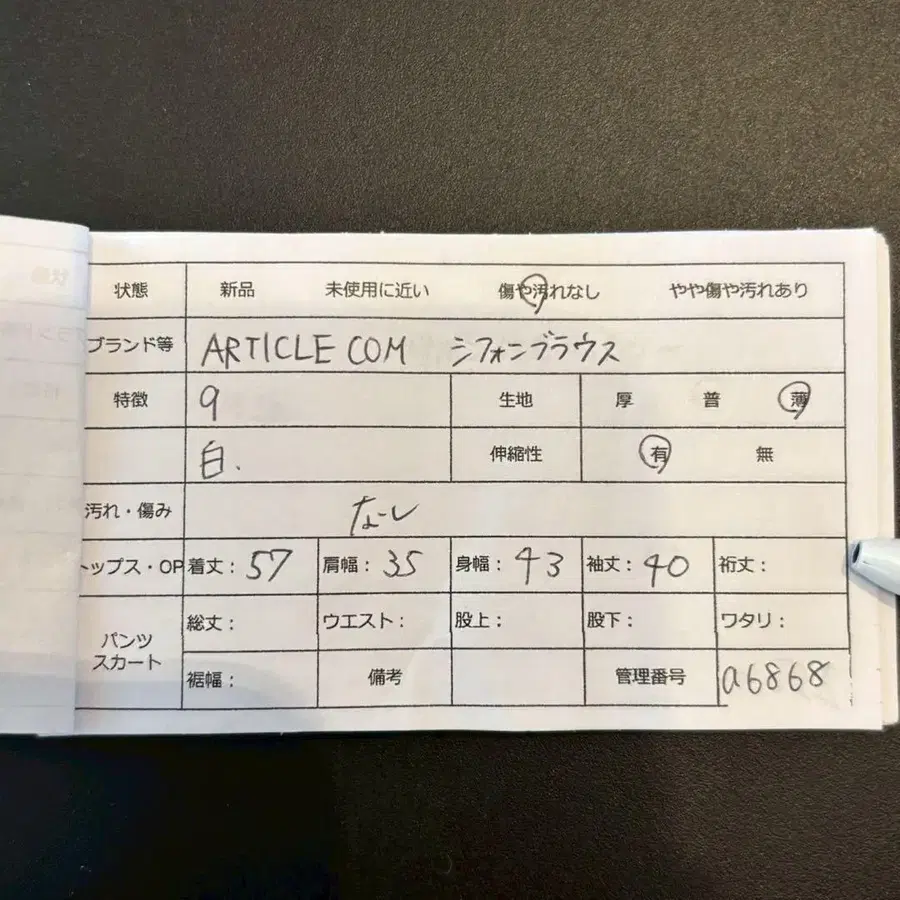 状態 新品 未使用に近い 傷や汚れなし やや傷や汚れあり
ブランド等 ARTICLE COM シフォンブラウス
特徴 9 生地 厚 普 薄
白. 伸縮性 有 無
汚れ・傷み なし
トップス・OP 着丈: 57 肩幅: 35 身幅: 43 袖丈: 40 裄丈:
パンツ スカート 総丈: ウエスト: 股上: 股下: ワタリ:
裾幅: 備考 管理番号 a6868